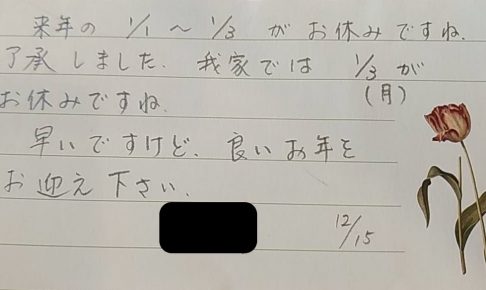 来年の 1/1 〜 1/3 がお休みですね.
了承しました. 我家では 1/3 が
(月)
お休みですね.
早いですけど、良いお年を
お迎え下さい.
12/15